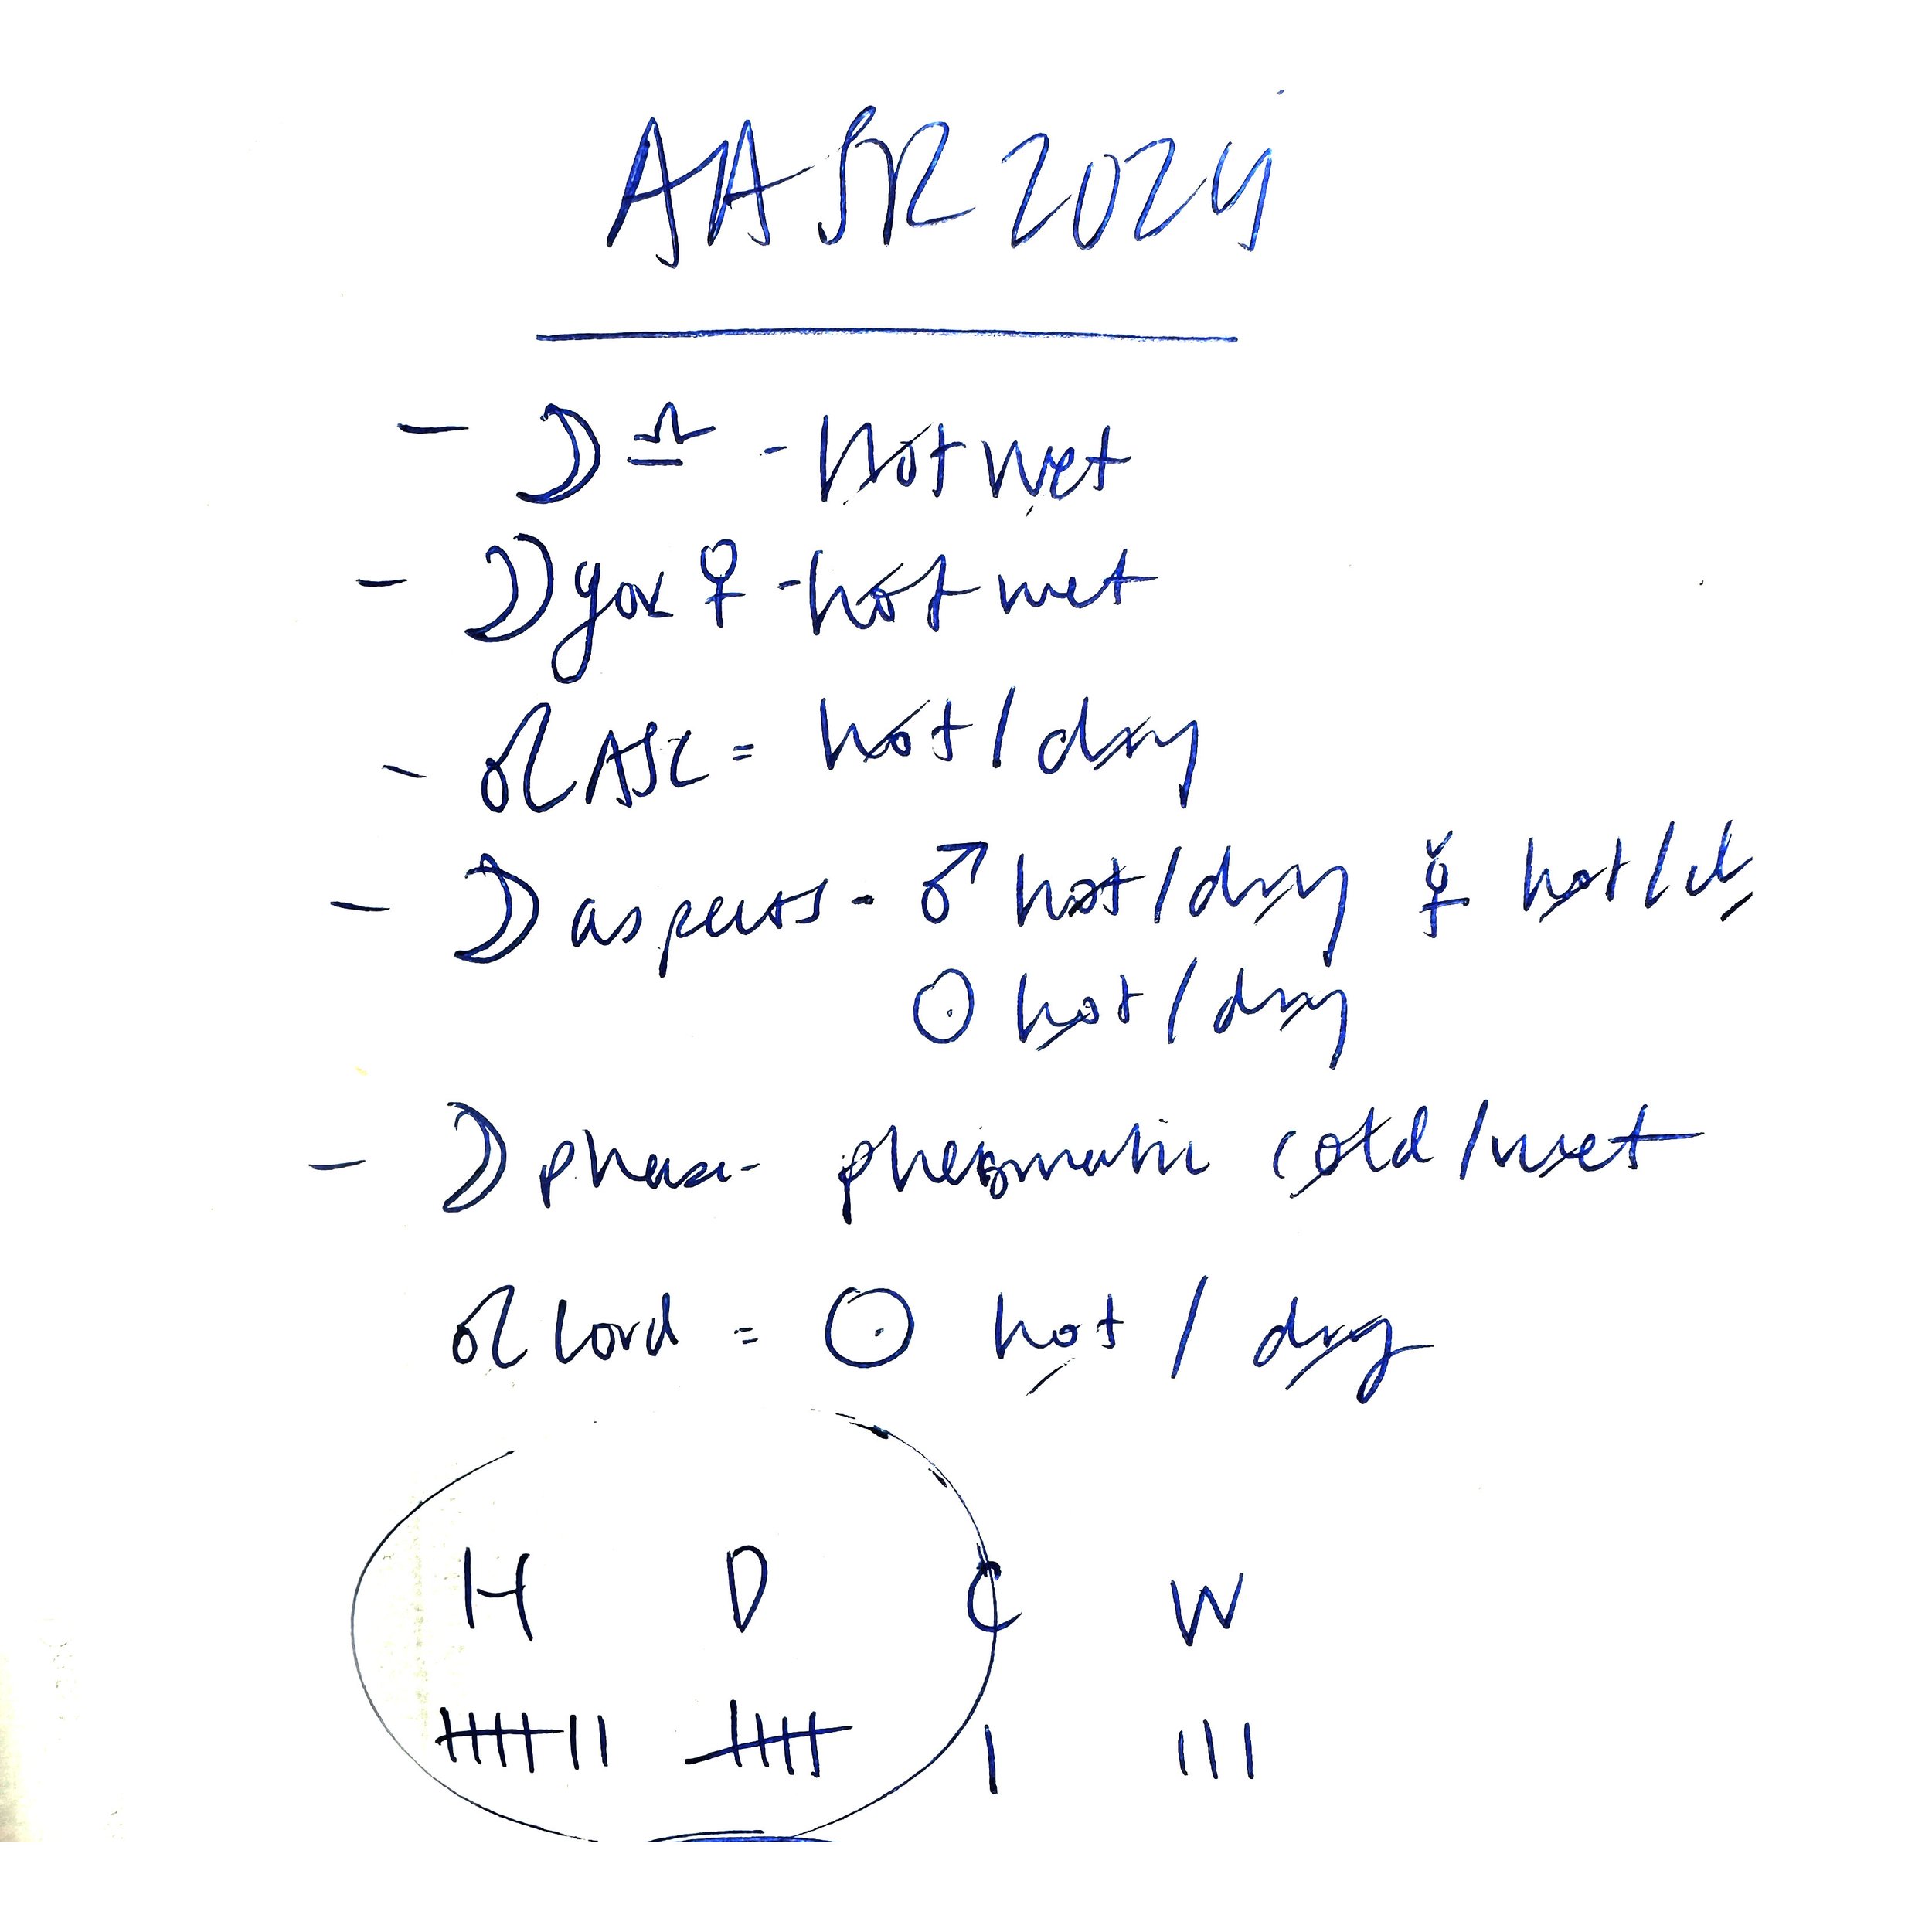 AA SR 2024
- ☽ ♎ - Hot wet
- ☽ gov ♀ - hot wet
- ♌ ASC = hot / dry
- ☽ aspects - ♂ hot / dry ☿ hot / d
☉ hot / dry
- ☽ phase - phlegmatic cold / wet
♌ Lord = ☉ hot / dry
H D C W